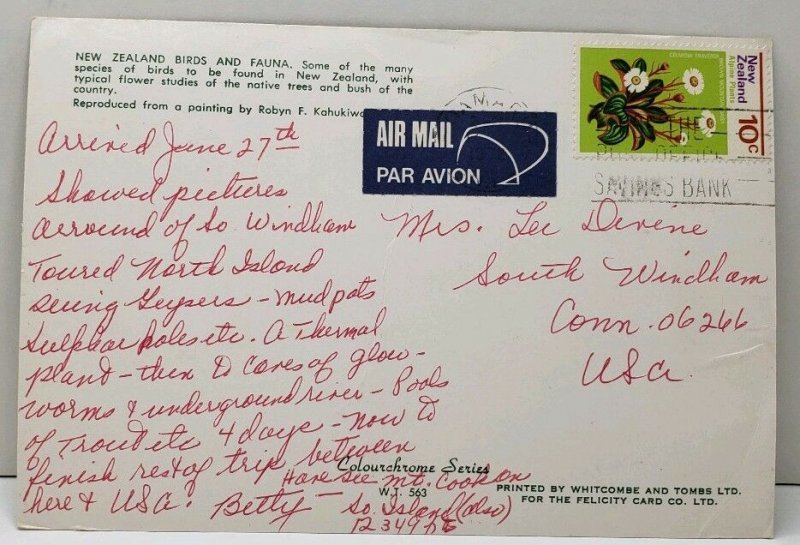 NEW ZEALAND BIRDS AND FAUNA. Some of the many
species of birds to be found in New Zealand, with
typical flower studies of the native trees and bush of the
country.
Reproduced from a painting by Robyn F. Kahukiwa
AIR MAIL
PAR AVION
New Zealand
Alpine Plants
10c
SAVINGS BANK
Arrived June 27th
Showed pictures
arround of So. Windham
Toured North Island
seeing Geysers - mud pots
Sulphar holes etc. A Thermal
plant - then to Caves of glow-
worms & underground river - Pools
of Trout etc 4 days - now to
finish rest of trip between
here & USA. Betty
Have see Mt. Cook on
So. Island (also)
12349 ft
Mrs. Lee Devine
South Windham
Conn. 06266
USA.
Colourchrome Series
W.T. 563
PRINTED BY WHITCOMBE AND TOMBS LTD.
FOR THE FELICITY CARD CO. LTD.